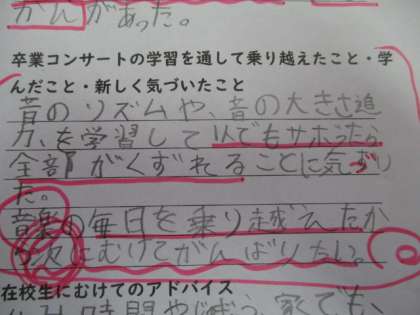 かんがあった。
卒業コンサートの学習を通して乗り越えたこと・学
んだこと・新しく気づいたこと
音のリズムや、音の大きさ迫
力、を学習して1人でもサボったら
全部がくずれることに気づい
た。
音楽の毎日を乗り越えたか
ら次にむけてがんばりたい。
在校生にむけてのアドバイス